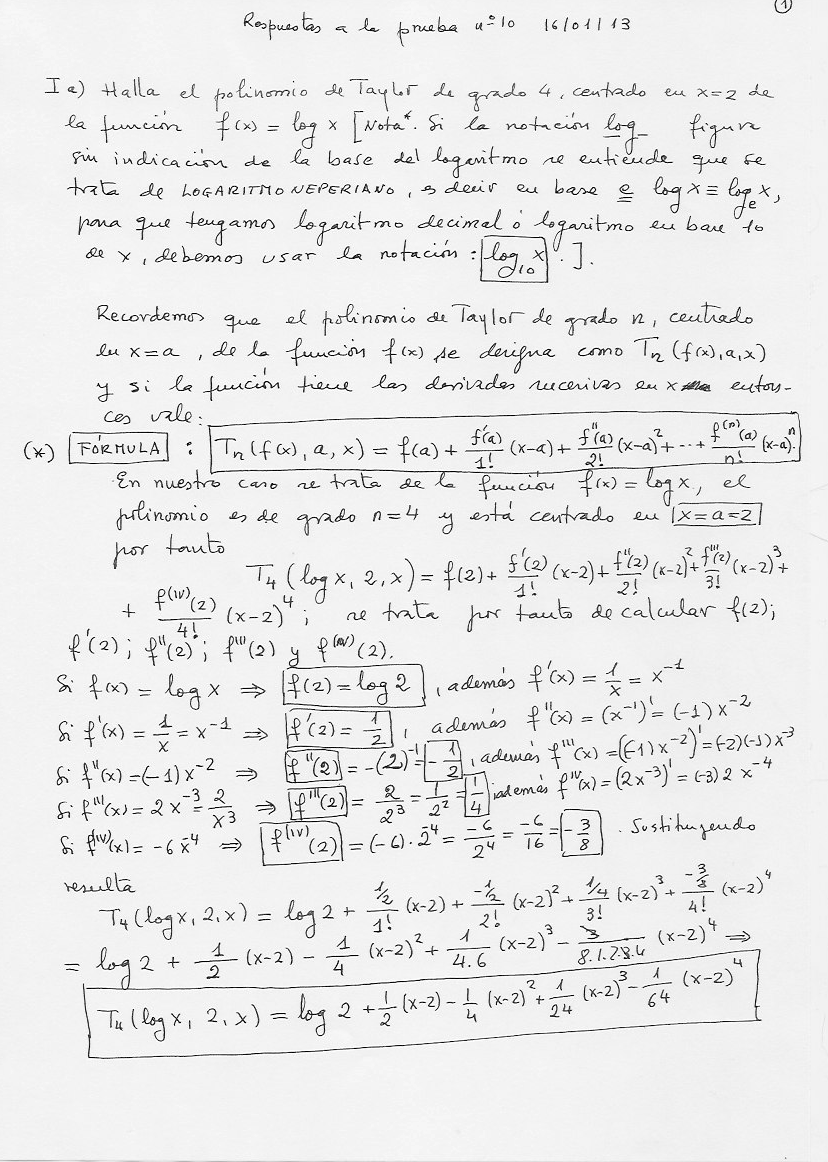 1
Respuestas a la prueba nº 10 16/01/13
I a) Halla el polinomio de Taylor de grado 4, centrado en x=2 de
la función f(x) = log x [Nota*. Si la notación log_ figura
sin indicación de la base del logaritmo se entiende que se
trata de LOGARITMO NEPERIANO, es decir en base e log x ≡ log_e x,
para que tengamos logaritmo decimal ó logaritmo en base 10
de x, debemos usar la notación : log_10 x . ].
Recordemos que el polinomio de Taylor de grado n, centrado
en x=a, de la función f(x) se designa como Tn (f(x), a, x)
y si la función tiene las derivadas sucesivas en x enton-
ces vale:
(*) FÓRMULA : Tn (f(x), a, x) = f(a) + f'(a)/1! (x-a) + f''(a)/2! (x-a)² + ··· + f⁽ⁿ⁾(a)/n! (x-a)ⁿ.
En nuestro caso se trata de la función f(x) = log x, el
polinomio es de grado n=4 y está centrado en x=a=2
por tanto
T4 (log x, 2, x) = f(2) + f'(2)/1! (x-2) + f''(2)/2! (x-2)² + f'''(2)/3! (x-2)³ +
+ f⁽ᴵⱽ⁾(2)/4! (x-2)⁴ ; se trata por tanto de calcular f(2);
f'(2) ; f''(2) ; f'''(2) y f⁽ᴵⱽ⁾(2).
Si f(x) = log x ⇒ f(2) = log 2 , además f'(x) = 1/x = x⁻¹
Si f'(x) = 1/x = x⁻¹ ⇒ f'(2) = 1/2 , además f''(x) = (x⁻¹)' = (-1) x⁻²
Si f''(x) = (-1) x⁻² ⇒ f''(2) = -(2)⁻¹ = -1/2 , además f'''(x) = ((-1) x⁻²)' = (-2)(-1) x⁻³
Si f'''(x) = 2x⁻³ = 2/x³ ⇒ f'''(2) = 2/2³ = 1/2² = 1/4 ; además fᴵⱽ(x) = (2x⁻³)' = (-3) 2 x⁻⁴
Si f⁽ᴵⱽ⁾(x) = -6 x⁻⁴ ⇒ f⁽ᴵⱽ⁾(2) = (-6) · 2⁻⁴ = -6/2⁴ = -6/16 = -3/8 . Sustituyendo
resulta
T4 (log x, 2, x) = log 2 + 1/2/1! (x-2) + -1/2/2! (x-2)² + 1/4/3! (x-2)³ + -3/8/4! (x-2)⁴
= log 2 + 1/2 (x-2) - 1/4 (x-2)² + 1/4.6 (x-2)³ - 3/8.1.2.3.4 (x-2)⁴ ⇒
T4 (log x, 2, x) = log 2 + 1/2 (x-2) - 1/4 (x-2)² + 1/24 (x-2)³ - 1/64 (x-2)⁴